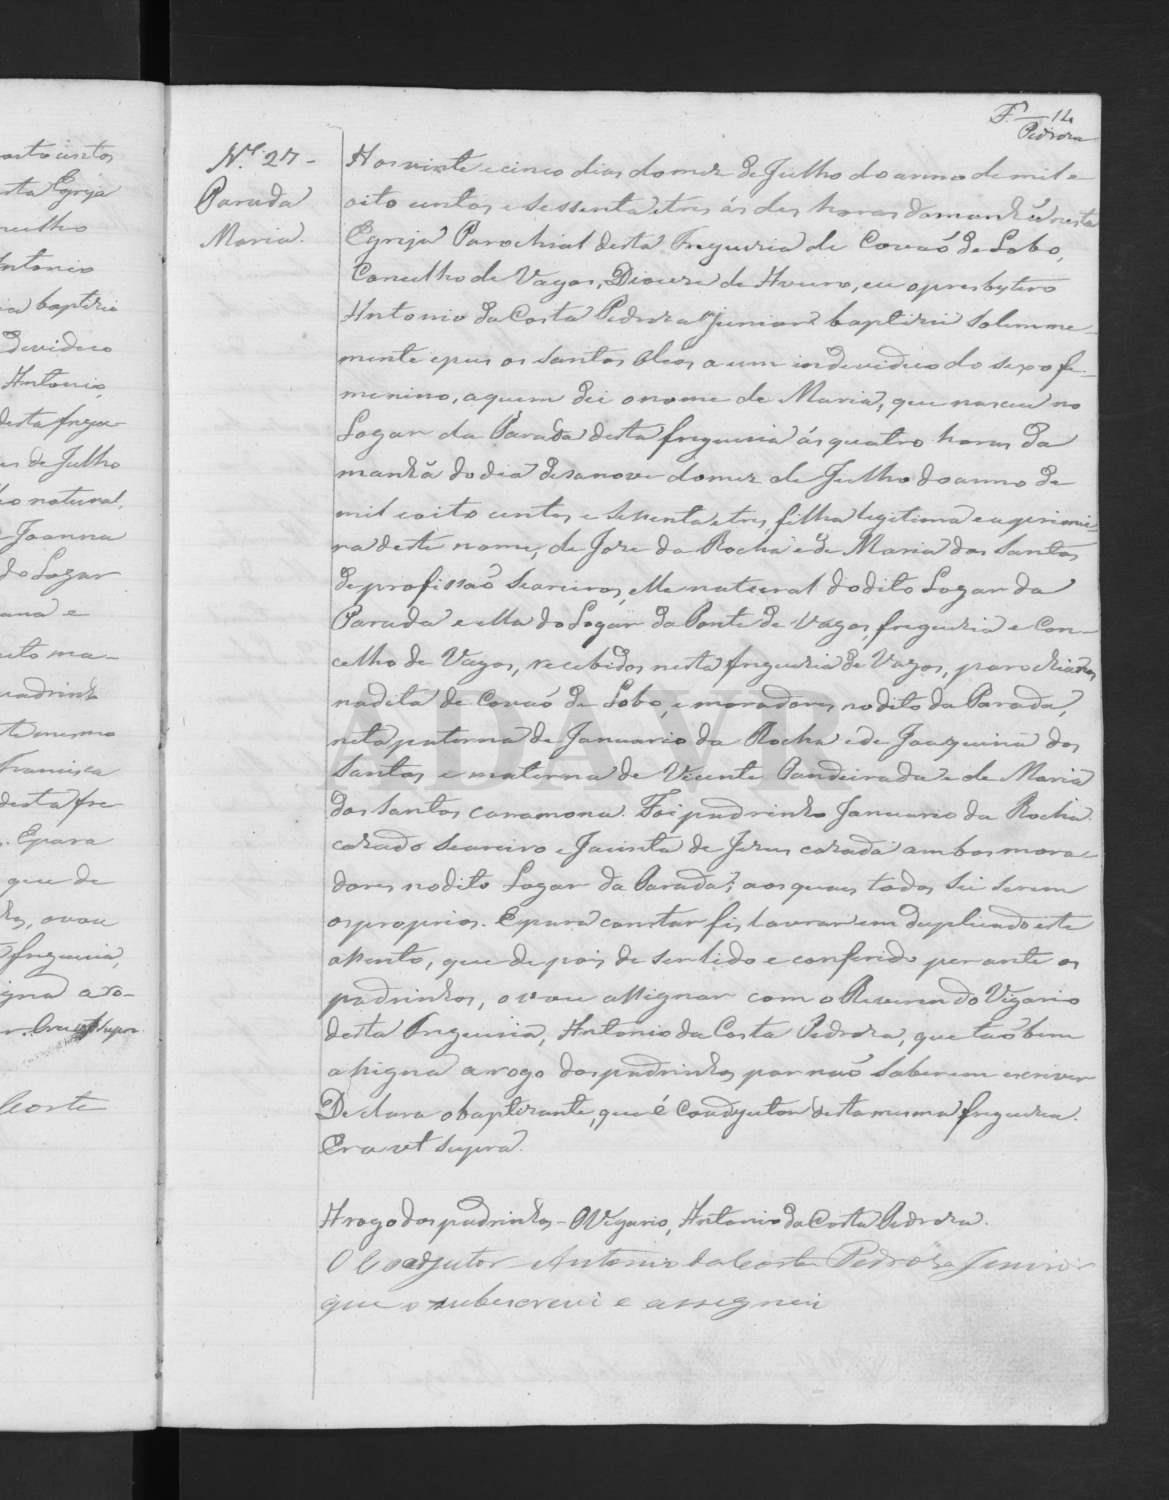 F. 14
Pedroza
N.º 27 -
Parada
Maria.
Aos vinte e cinco dias do mez de Julho do anno de mil e
oito centos e sessenta e tres ás des horas da manhã nesta
Egreja Parochial desta Freguezia de Covaõ de Lobo,
Concelho de Vagos, Diocese de Aveiro, eu o presbytero
Antonio da Costa Pedroza Junior baptizei solemne-
mente e pus os santos oleos a um individuo do sexo fe-
menino, a quem dei o nome de Maria, que nasceu no
Logar da Parada desta freguezia ás quatro horas da
manhã do dia desanove do mez de Julho do anno de
mil e oito centos e sessenta e tres, filha legitima e a primei
ra deste nome, de Joze da Rocha e de Maria dos Santos
de profissaõ Seareiros, elle natural do dito Logar da
Parada e ella do Logar da Ponte de Vagos, freguezia e Con-
celho de Vagos, recebidos nesta freguezia de Vagos, parochianos
na dita de Covaõ de Lobo, e moradores no dito da Parada,
neta paterna de Januario da Rocha e de Joaquina dos
Santos e materna de Vicente Pandeirada e de Maria
dos Santos caramona. Foi padrinho Januario da Rocha
cazado Seareiro e Jacinta de Jezus cazada ambos mora-
dores no dito Logar da Parada, aos quaes todos sei serem
os proprios. E para constar fis lavrar em duplicado este
assento, que depois de ser lido e conferido perante os
padrinhos, o vou assignar com o Reverendo Vigario
desta Freguezia, Antonio da Costa Pedroza, que taõ bem
assigna a rogo dos padrinhos por naõ saberem escriver
Declara o baptizante, que é Coadjutor desta mesma freguezia.
Era ut supra.
A rogo dos padrinhos - O Vigario, Antonio da Costa Pedroza.
O Coadjutor Antonio da Costa Pedroza Junior
que o subscrevi e assignei
ADAVR